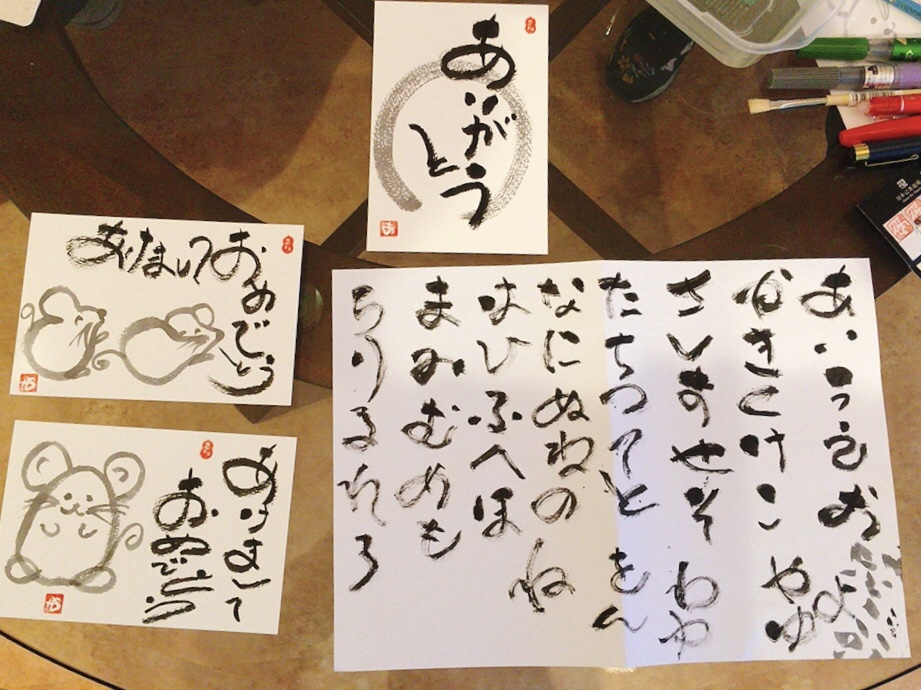 ありがとう
あけまして
おめでとう
あけまして
おめでとう
あいうえお
かきくけこ やゆよ
さしすせそ わわ
たちつてと をん
なにぬねの ね
はひふへほ
まみむめも
らりるれろ